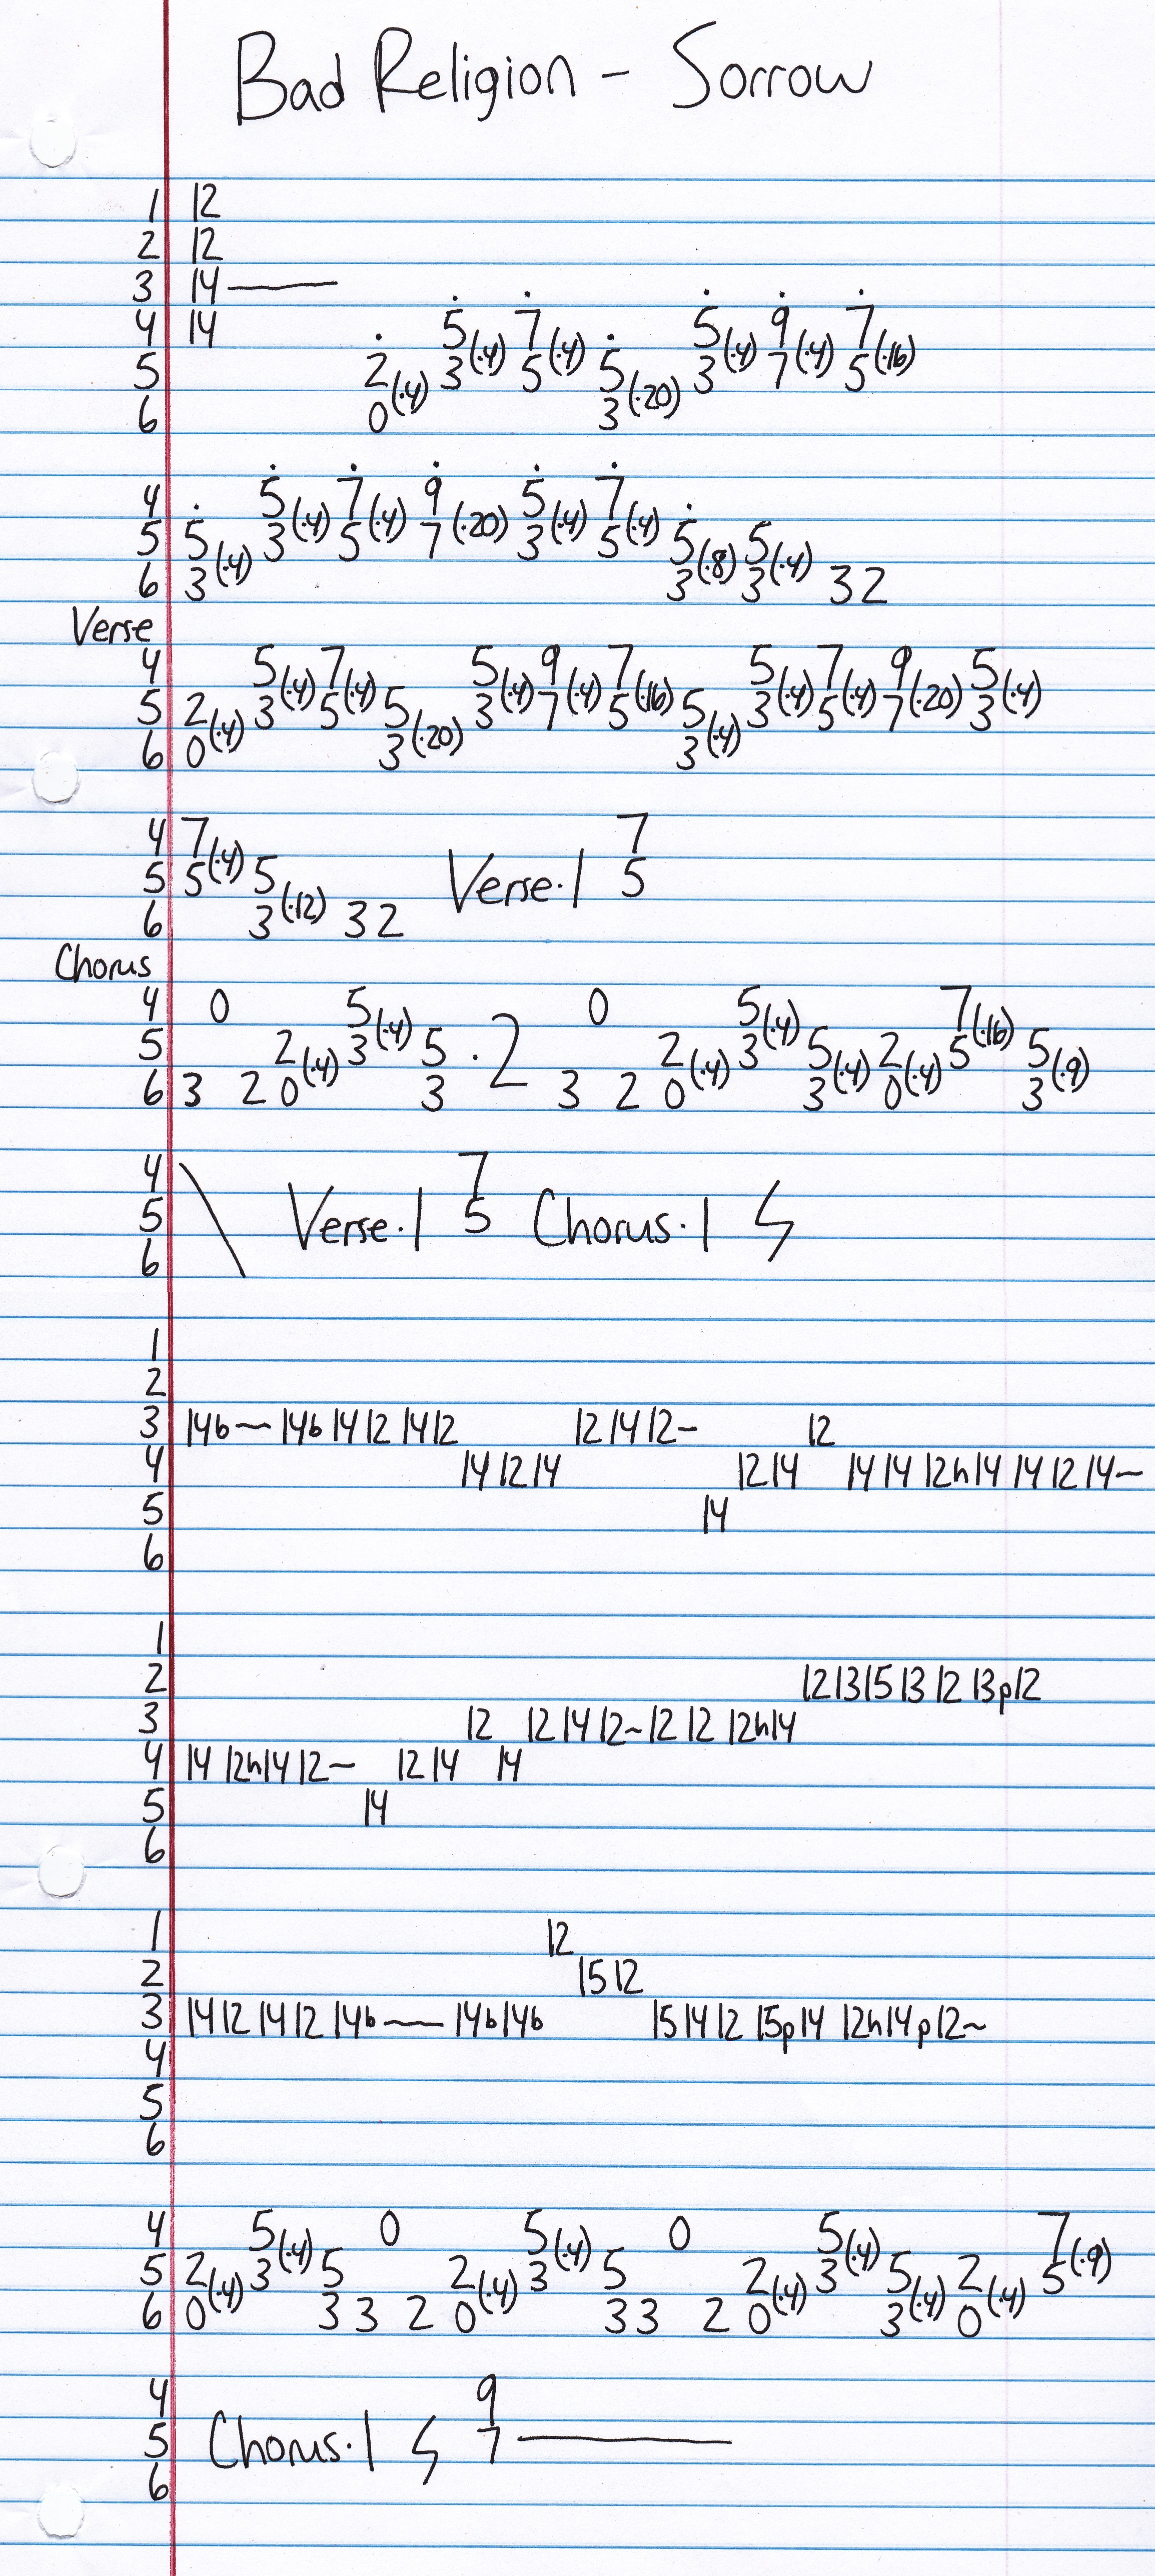 Bad Religion - Sorrow
1 12
2 12
3 14—
4 14 5(·4) 7(·4) 5(·4) 9(·4) 7(·16)
5 2(·4) 3 5 5(·20) 3 7 5
6 0 3
4 5(·4) 7(·4) 9(·20) 5(·4) 7(·4)
5 5(·4) 3 5 7 3 5 5(·8) 5(·4)
6 3 3 3 3 2
Verse
4 5(·4) 7(·4) 5(·4) 9(·4) 7(·16) 5(·4) 7(·4) 9(·20) 5(·4)
5 2(·4) 3 5 5(·20) 3 7 5 5(·4) 3 5 7 3
6 0 3 3
4 7(·4) 7
5 5 5(·12) Verse·1 5
6 3 3 2
Chorus
4 0 5(·4) 0 5(·4) 7(·16)
5 2(·4) 3 5 ·2 2(·4) 3 5(·4) 2(·4) 5 5(·9)
6 3 2 0 3 3 2 0 3 0 3
4 \ 7
5 Verse·1 5 Chorus·1
6
1
2
3 14b— 14b 14 12 14 12 12 14 12~ 12
4 14 12 14 12 14 14 14 12h14 14 12 14~
5 14
6
1
2 12 13 15 13 12 13p12
3 12 12 14 12~ 12 12 12h14
4 14 12h14 12~ 12 14 14
5 14
6
1 12
2 15 12
3 14 12 14 12 14b— 14b 14b 15 14 12 15p14 12h14p12~
4
5
6
4 5(·4) 0 5(·4) 0 5(·4) 7(·9)
5 2(·4) 3 5 2(·4) 3 5 2(·4) 3 5(·4) 2(·4) 5
6 0 3 3 2 0 3 3 2 0 3 0
4 9
5 Chorus·1 7—
6